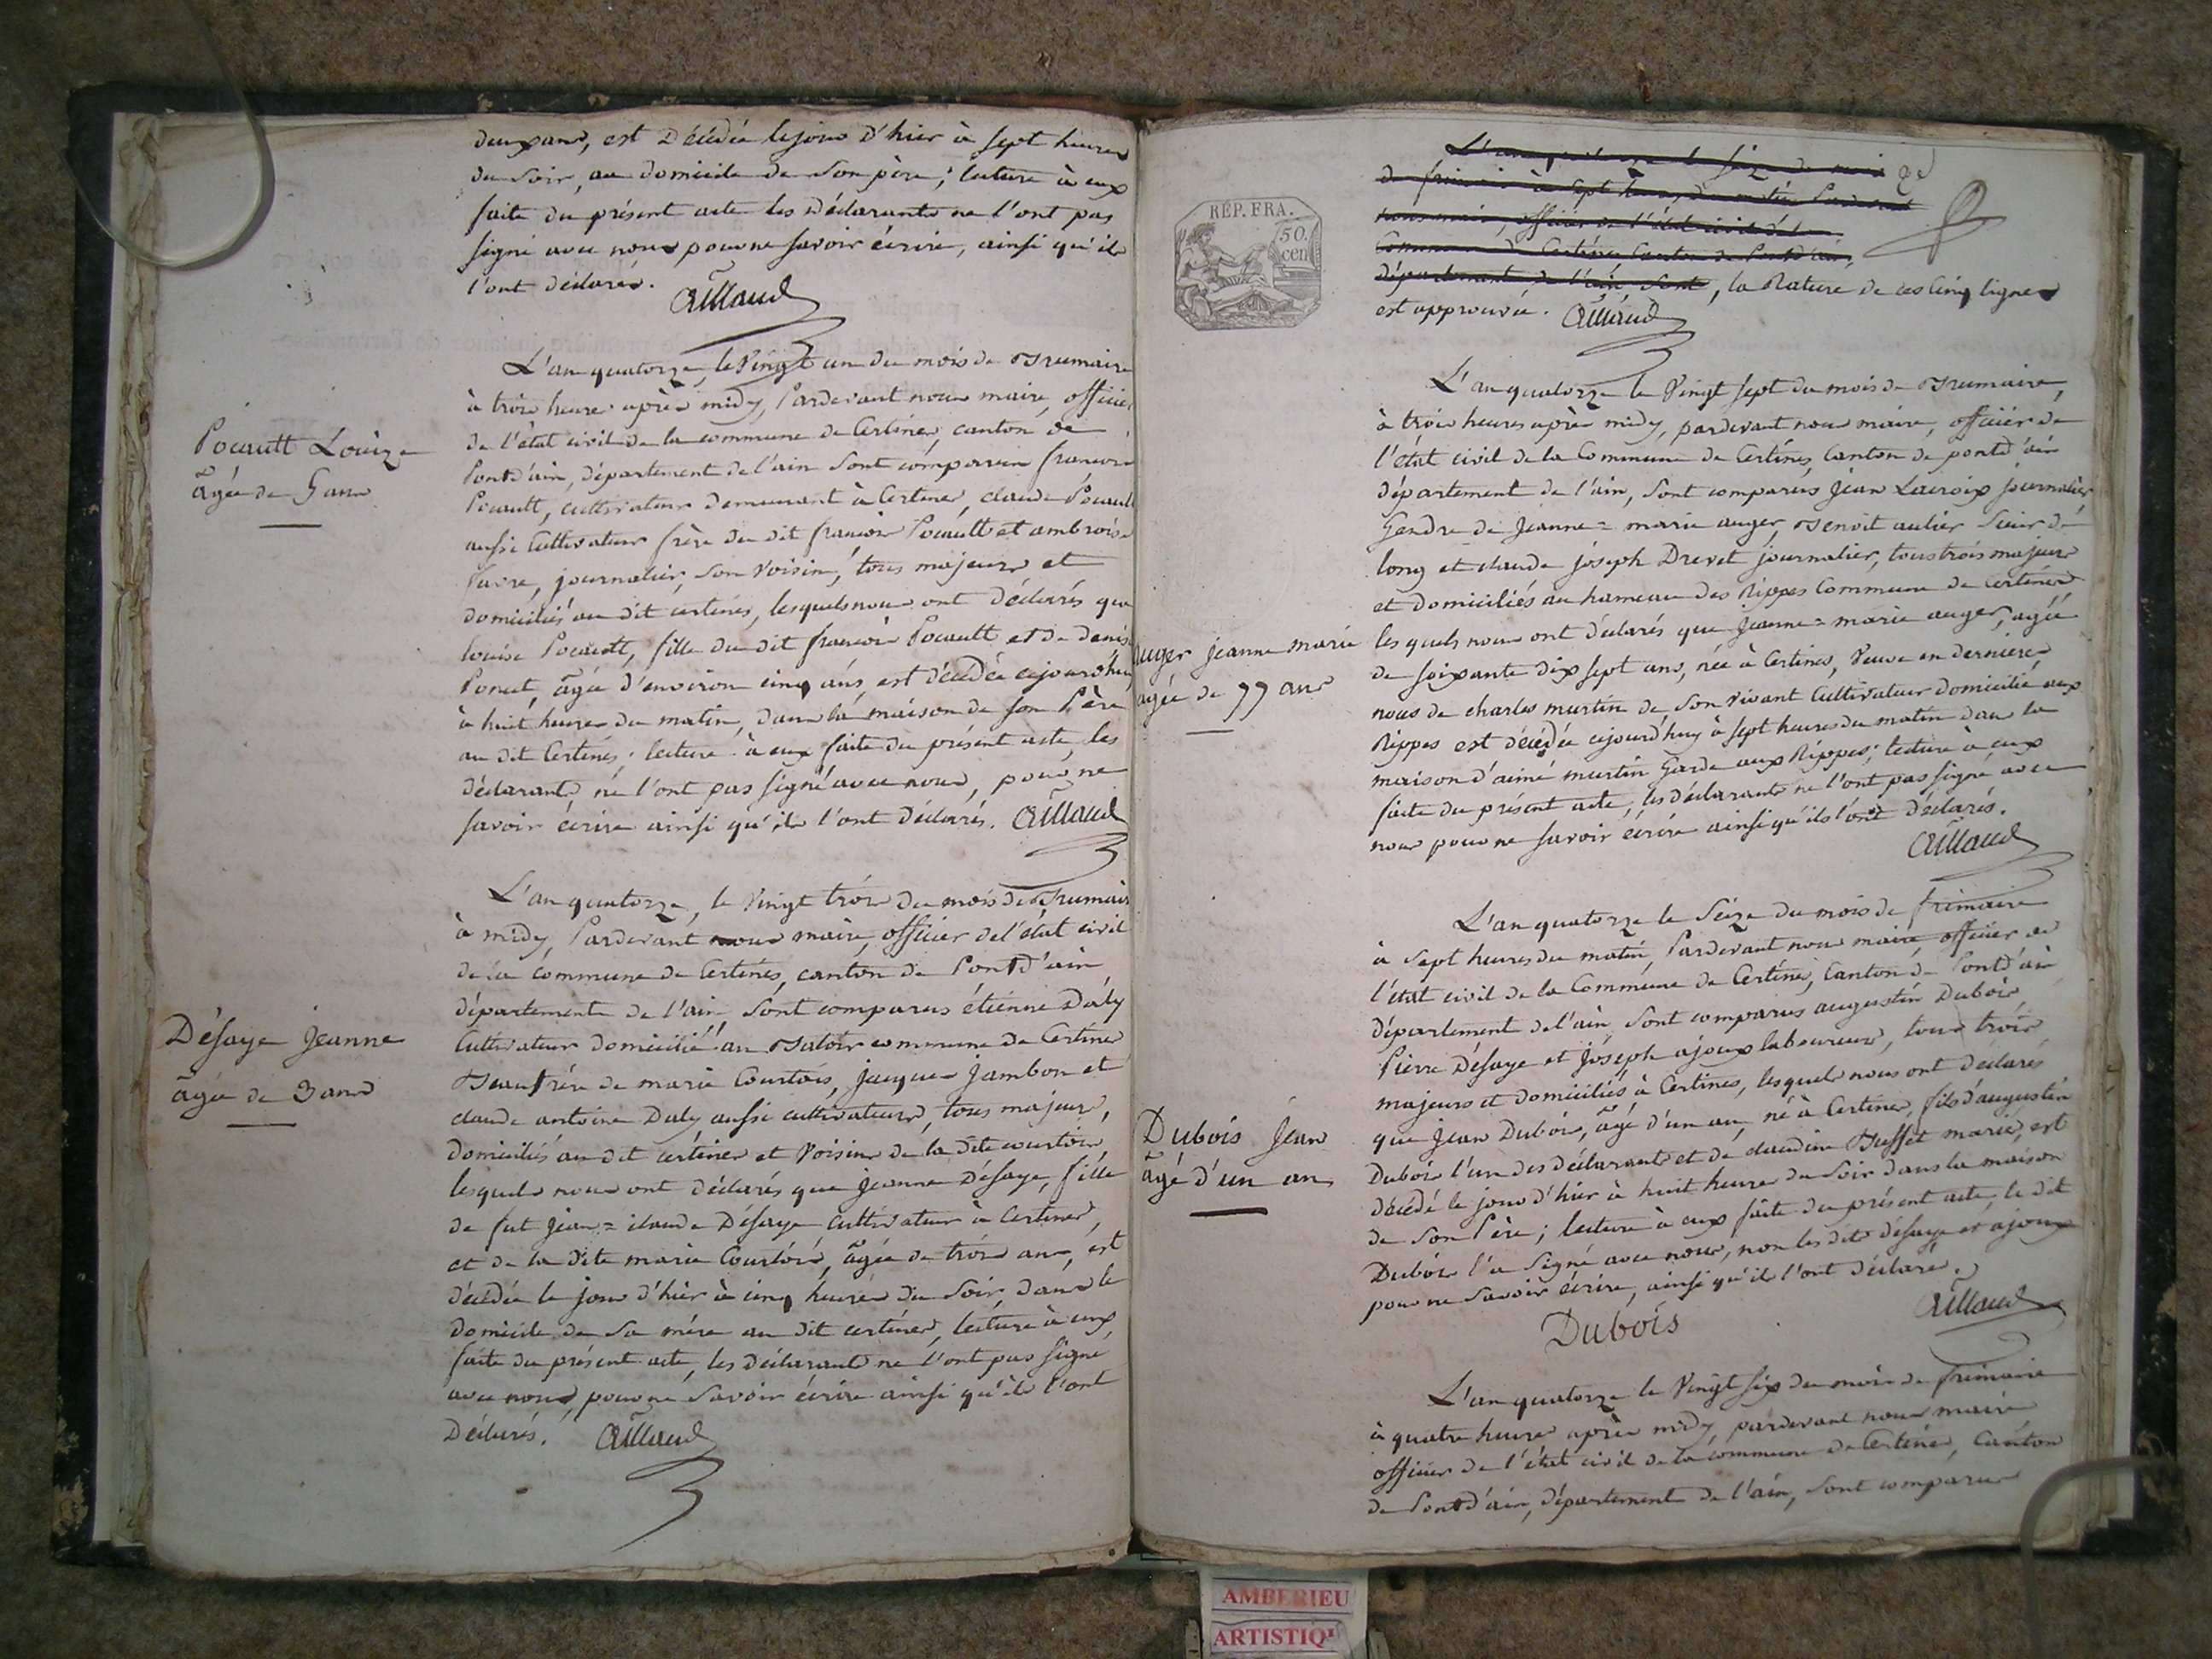 deux ans, est Décédée le jour d'hier à sept heures
du soir, au domicile de son père; lecture à eux
faite du présent acte les déclarants ne l'ont pas
signé avec nous pour ne savoir écrire, ainsi qu'ils
l'ont déclarés.
Aillaud
L'an quatorze, le Vingt un du mois de Brumaire
à trois heures après midy, Pardevant nous maire, officier
de l'état civil de la commune de Certines, canton de
Pontd'ain, département de l'ain sont comparu françois
Pocault, cultivateur demeurant à Certines, claude Pocault
aussi Cultivateur frère du dit françois Pocault et ambroise
favre, journalier, son Voisin, tous majeurs et
domiciliés au dit certines, lesquels nous ont déclarés que
louise Pocault, fille du dit françois Pocault et de denise
Poncet, âgée d'environ cinq ans, est décédée cejourd'huy
à huit heures du matin, dans la maison de son Père
au dit Certines; lecture à eux faite du présent acte, les
déclarants ne l'ont pas signé avec nous, pour ne
savoir écrire ainsi qu'ils l'ont Déclarés. Aillaud
Pocault Louize
âgée de 5 ans
L'an quatorze, le Vingt trois du mois de Brumaire
à midy, Pardevant nous maire, officier de l'état civil
de la commune de Certines, canton de Pontd'ain
département de l'ain sont comparus étienne Daly
Cultivateur domicilié au commune de Certines
Beaufrère de marie Courtois, jacques jambon et
claude antoine Daly aussi cultivateurs, tous majeurs,
domiciliés au dit certines et Voisins de la dite courtois,
lesquels nous ont déclarés que jeanne Désaye, fille
de fut jean=claude Désaye cultivateur à Certines,
et de la dite marie Courtois, âgée de trois ans, est
décédée le jour d'hier à cinq heures du soir dans le
domicile de sa mère au dit certines, lecture à eux
faite du présent acte, les déclarants ne l'ont pas signé
avec nous, pour ne savoir écrire ainsi qu'ils l'ont
Déclarés. Aillaud
Désaye jeanne
âgée de 3 ans
RÉP. FRA.
50.
cen
L'an quatorze le seize du mois
de frimaire à sept heures du matin Pardevant
nous maire, officier de l'état civil de la
Commune de Certines Canton de Pontd'ain,
département de l'ain, sont, la Rature de ces Cinq lignes
est approuvée. Aillaud
L'an quatorze le Vingt sept du mois de Brumaire,
à trois heures après midy, pardevant nous maire, officier de
l'état civil de la Commune de Certines, Canton de pontd'ain
département de l'ain, sont comparus jean Lacroix journalier
Gendre de jeanne=marie auger, Benoit aulier scieur de
long et claude joseph Drevet journalier, tous trois majeurs
et domiciliés au hameau des Rippes Commune de certines
les quels nous ont déclarés que jeanne=marie auger, agée
de soixante dix sept ans, née à Certines, Veuve en dernières
noces de charles murtin de son vivant Cultivateur domicilié aux
Rippes est décédée cejourd'huy à sept heures du matin dans la
maison d'aimé murtin Garde aux Rippes; lecture à eux
faite du présent acte, les déclarants ne l'ont pas signé avec
nous pour ne savoir écrire ainsi qu'ils l'ont déclarés.
Aillaud
auger jeanne marie
agée de 77 ans
L'an quatorze le Seize du mois de frimaire
à sept heures du matin, Pardevant nous maire, officier de
l'état civil de la Commune de Certines, Canton de Pontd'ain
département de l'ain, sont comparus augustin Dubois
Pierre Désaye et joseph ajoux laboureurs, tous trois
majeurs et domiciliés à Certines, lesquels nous ont déclarés
que jean Dubois, âgé d'un an, né à Certines, fils d'augustin
Dubois l'un des déclarants et de claudine Buffet mariés, est
décédé le jour d'hier à huit heures du soir dans la maison
de son Père; lecture à eux faite du présent acte, le dit
Dubois l'a signé avec nous, non les dits désaye et ajoux
pour ne savoir écrire, ainsi qu'ils l'ont déclaré.
Aillaud
Dubois
Dubois jean
âgé d'un an
L'an quatorze le Vingt six du mois de frimaire
à quatre heures après midy, pardevant nous maire
officier de l'état civil de la commune de Certines, Canton
de Pontd'ain, département de l'ain, sont comparus
AMBERIEU
ARTISTIQU